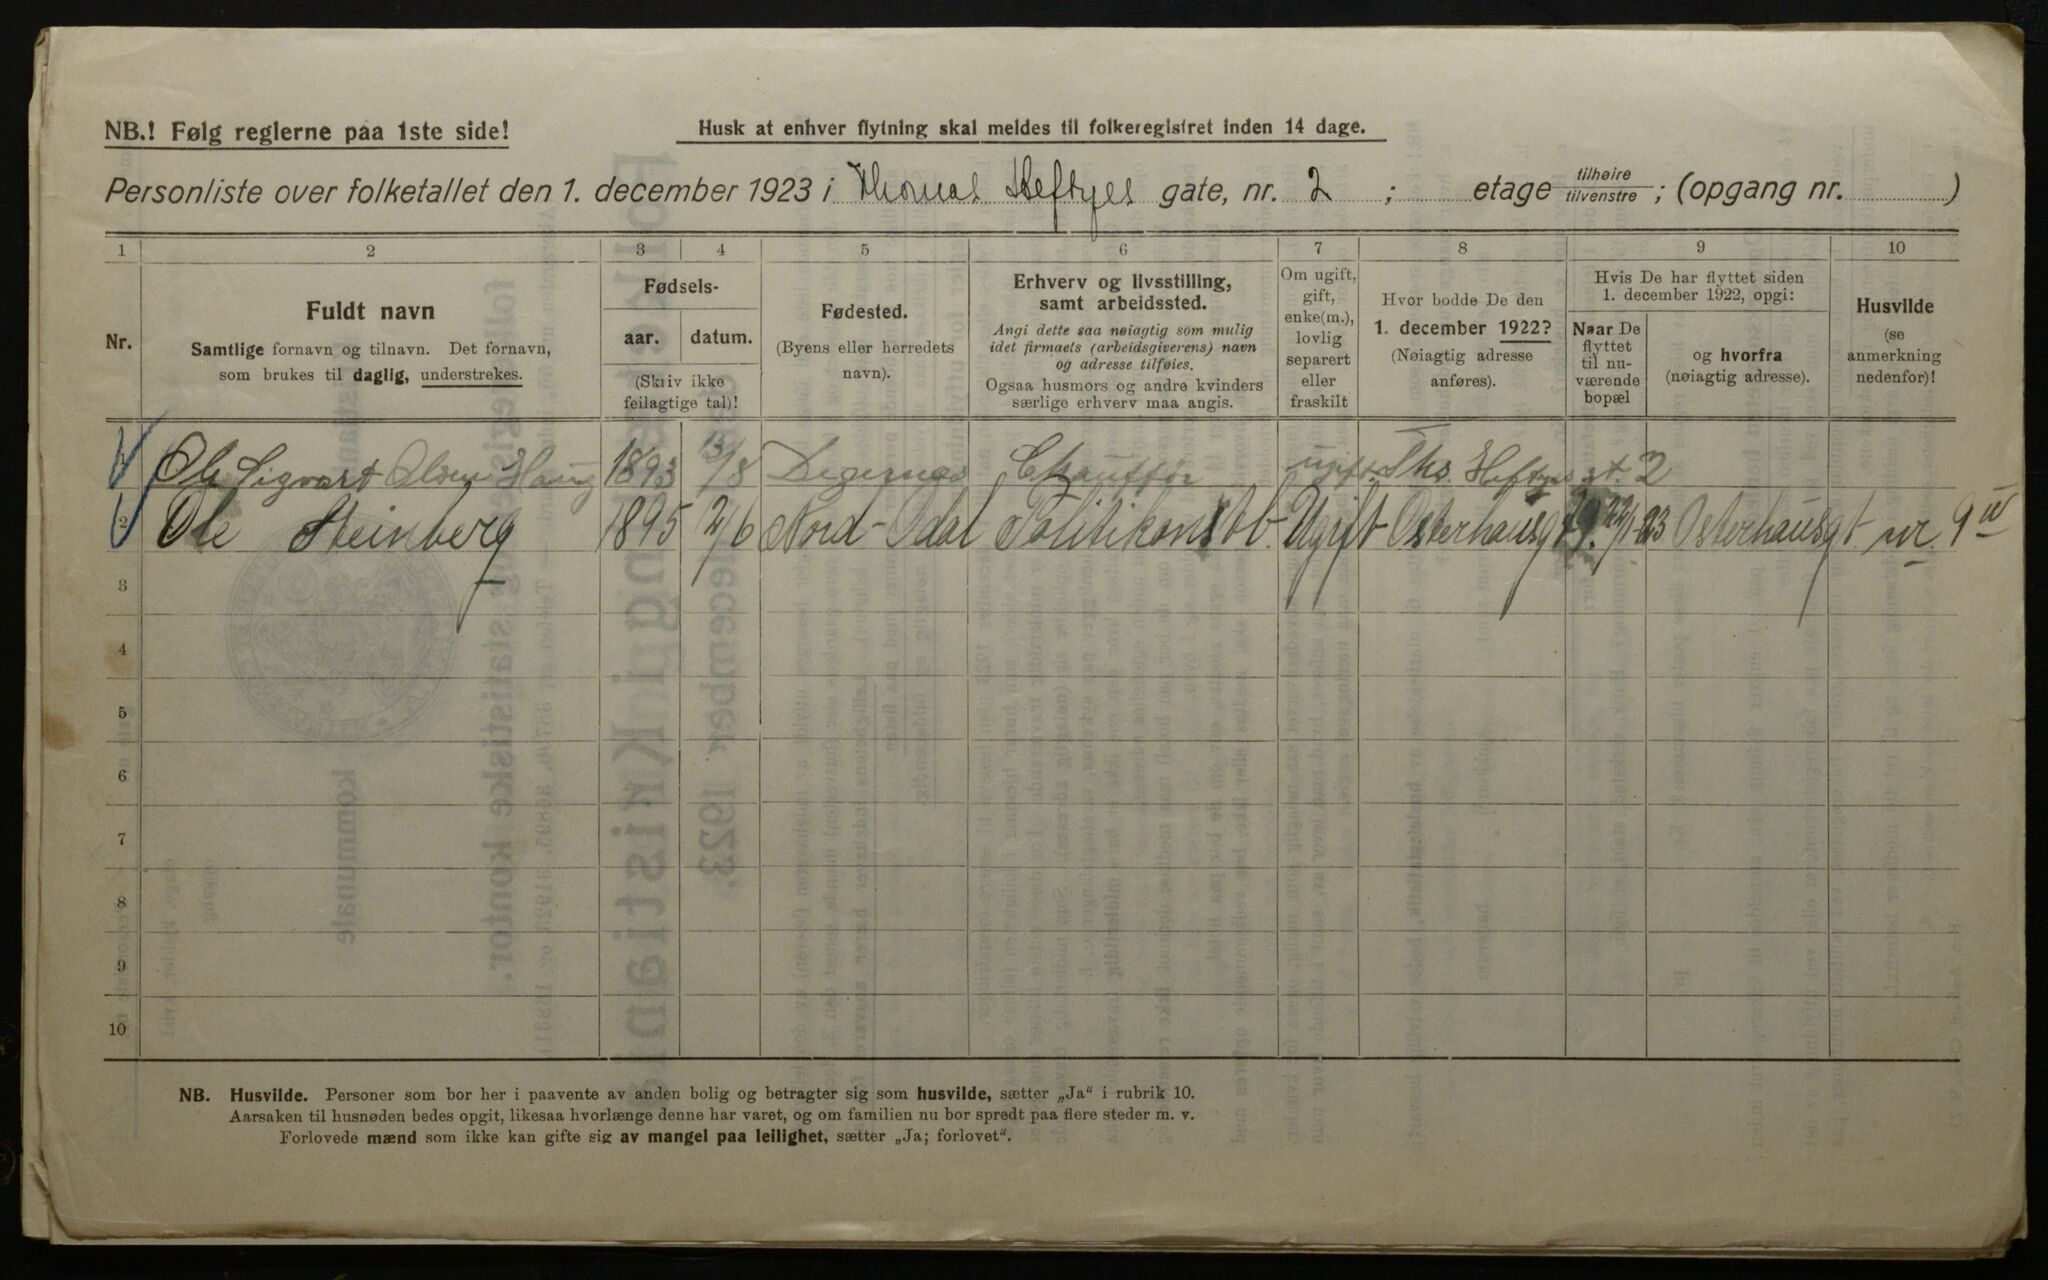 NB.! Følg reglerne paa 1ste side!
Husk at enhver flytning skal meldes til folkeregistret inden 14 dage.
Personliste over folketallet den 1. december 1923 i Thomas Heftyes gate, nr. 2 ; etage tilhøire tilvenstre ; (opgang nr. )
1 2 3 4 5 6 7 8 9 10
Nr.
Fuldt navn
Samtlige fornavn og tilnavn. Det fornavn,
som brukes til daglig, understrekes.
Fødsels-
aar. datum.
(Skriv ikke
feilagtige tal)!
Fødested.
(Byens eller herredets
navn).
Erhverv og livsstilling,
samt arbeidssted.
Angi dette saa nøiagtig som mulig
idet firmaets (arbeidsgiverens) navn
og adresse tilføies.
Ogsaa husmors og andre kvinders
særlige erhverv maa angis.
Om ugift,
gift,
enke(m.),
lovlig
separert
eller
fraskilt
Hvor bodde De den
1. december 1922?
(Nøiagtig adresse
anføres).
Hvis De har flyttet siden
1. december 1922, opgi:
Naar De
flyttet
til nu-
værende
bopæl
og hvorfra
(nøiagtig adresse).
Husvilde
(se
anmerkning
nedenfor)!
Ole Sigvart Olsen Haug 1893 13/8 Degernes Chauffør ugift Ths. Heftyes gt. 2
2 Ole Steinberg 1895 2/6 Nord-Odal Politikonstb. Ugift Osterhausgt 9. 22/1-23 Osterhausgt. nr. 9 IV
3
4
5
6
7
8
9
10
NB. Husvilde. Personer som bor her i paavente av anden bolig og betragter sig som husvilde, sætter „Ja" i rubrik 10.
Aarsaken til husnøden bedes opgit, likesaa hvorlænge denne har varet, og om familien nu bor spredt paa flere steder m. v.
Forlovede mænd som ikke kan gifte sig av mangel paa leilighet, sætter „Ja; forlovet".